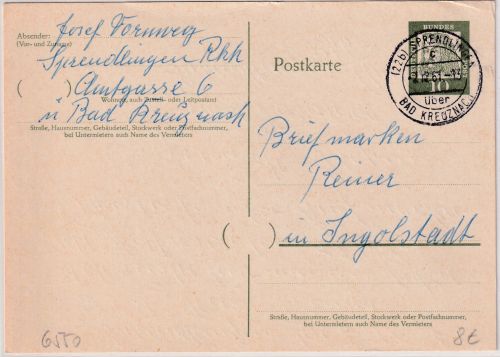 Absender:
(Vor- und Zuname)
Josef Vornweg
Sprendlingen Rhh
( ) Amtgasse 6
Wohnort, auch Zustell- oder Leitpostamt)
ü Bad Kreuznach
Straße, Hausnummer, Gebäudeteil, Stockwerk oder Postfachnummer,
bei Untermietern auch Name des Vermieters
Postkarte
BUNDES
10
(22b) SPRENDLINGEN
c
über
BAD KREUZNACH
Briefmarken
Reiner
( ) in Ingolstadt
Straße, Hausnummer, Gebäudeteil, Stockwerk oder Postfachnummer,
bei Untermietern auch Name des Vermieters
6550
8€